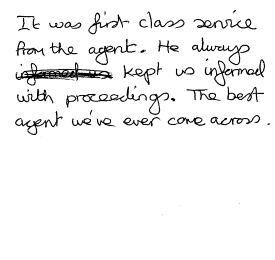 It was first class service
from the agent. He always
informed us kept us informed
with proceedings. The best
agent we've ever come across.